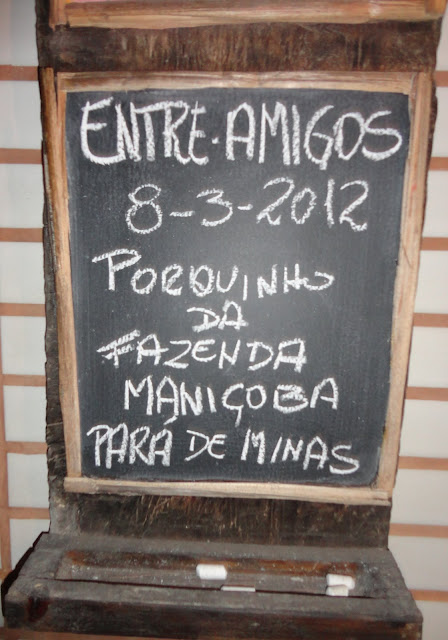 ENTRE-AMIGOS
8-3-2012
PORQUINHO
DA
FAZENDA
MANIÇOBA
PARÁ DE MINAS